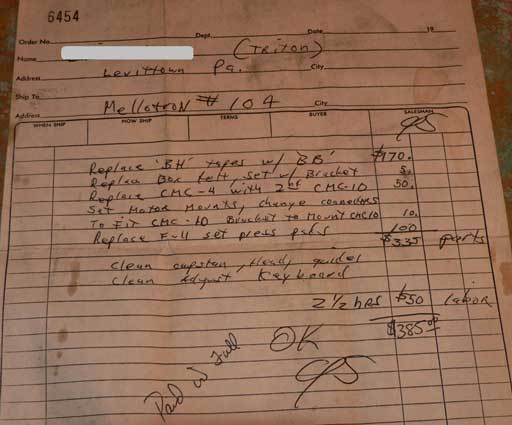 6454
Order No. Dept. Date 19
Name (Triton)
Address Levittown Pa. City
Ship To
Address Mellotron # 104 City
WHEN SHIP HOW SHIP TERMS BUYER SALESMAN
Replace 'BH' tapes w/ 'BB' $170.
Replace Box felt set w/ Bracket 5.
Replace CMC-4 with 2nd CMC-10 50.
Set Motor Mounts, change connectors
To Fit CMC-10 Bracket to Mount CMC10 10.
Replace F-4 set press pads 100
$335 parts
Clean capstan, Heads, guides
Clean Adjust Keyboard
2 1/2 hrs $50 labor
$385.00
OK
Paid in Full